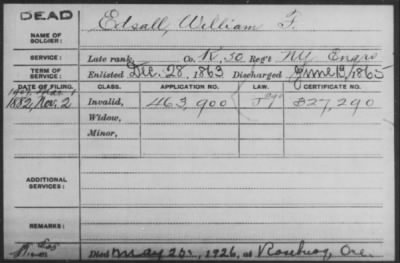 DEAD
Edsall, William F.
NAME OF SOLDIER:
SERVICE: Late rank, Co. K, 50 Reg't NY Engrs
TERM OF SERVICE: Enlisted Dec. 28, 1863 Discharged June 13, 1865
DATE OF FILING. CLASS. APPLICATION NO. LAW. CERTIFICATE NO.
1882, Nov. 2 Invalid, 463,900 327,290
Widow,
Minor,
ADDITIONAL SERVICES:
REMARKS:
Died May 25, 1926, at Roseburg, Ore.